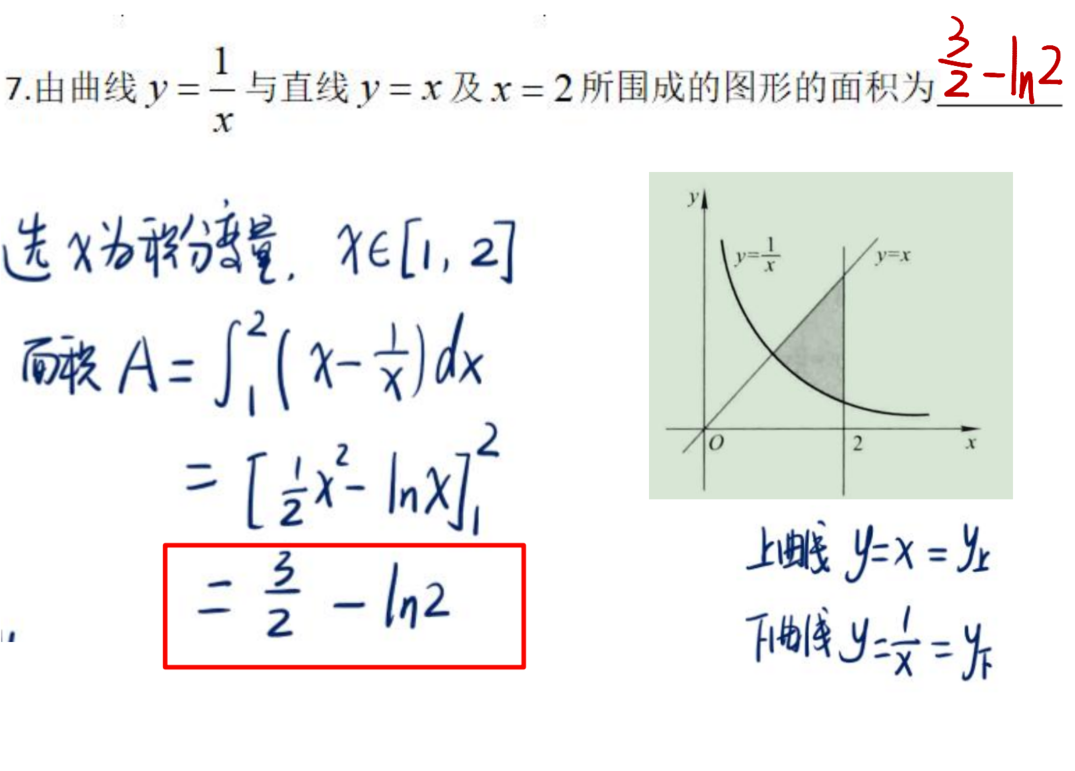 7.由曲线 y = 1/x 与直线 y = x 及 x = 2 所围成的图形的面积为 3/2 - ln2
选 x 为积分变量, x∈[1, 2]
面积 A = ∫₁² (x - 1/x) dx
= [1/2 x² - lnx]₁²
= 3/2 - ln2
y
y=1/x
y=x
O
2
x
上曲线 y=x = y上
下曲线 y=1/x = y下